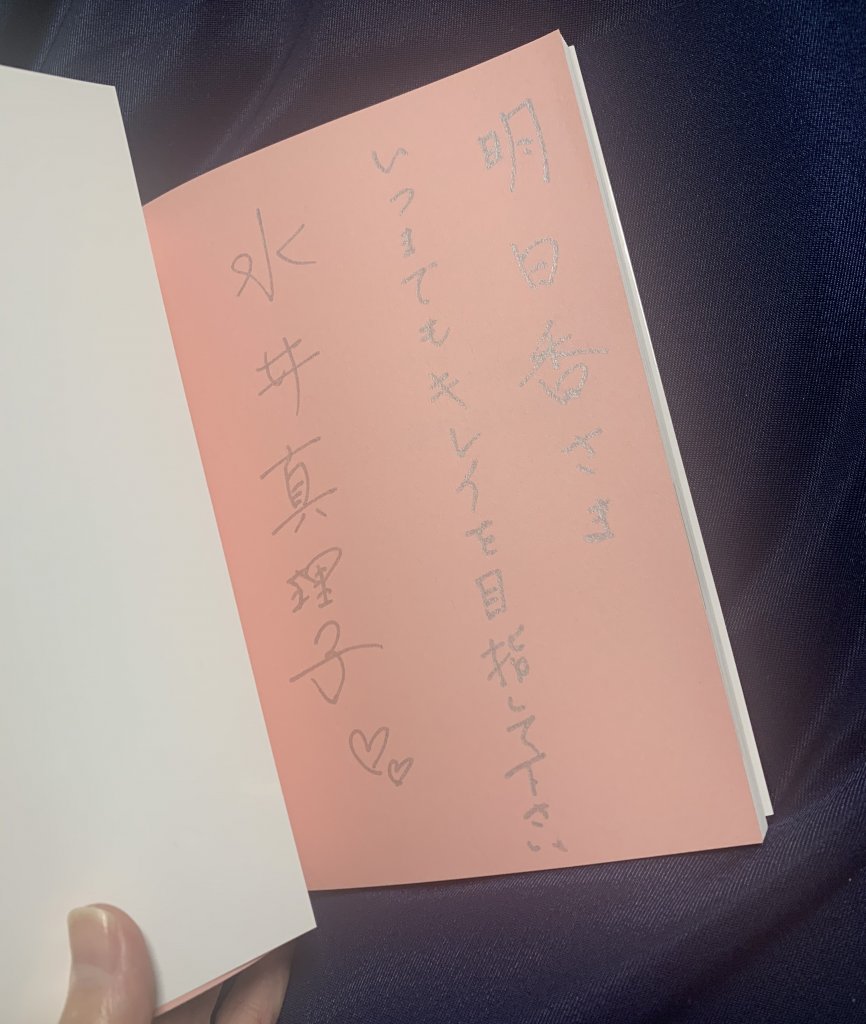 明日香さま
いつまでもキレイを目指して下さい
水井真理子♡♡